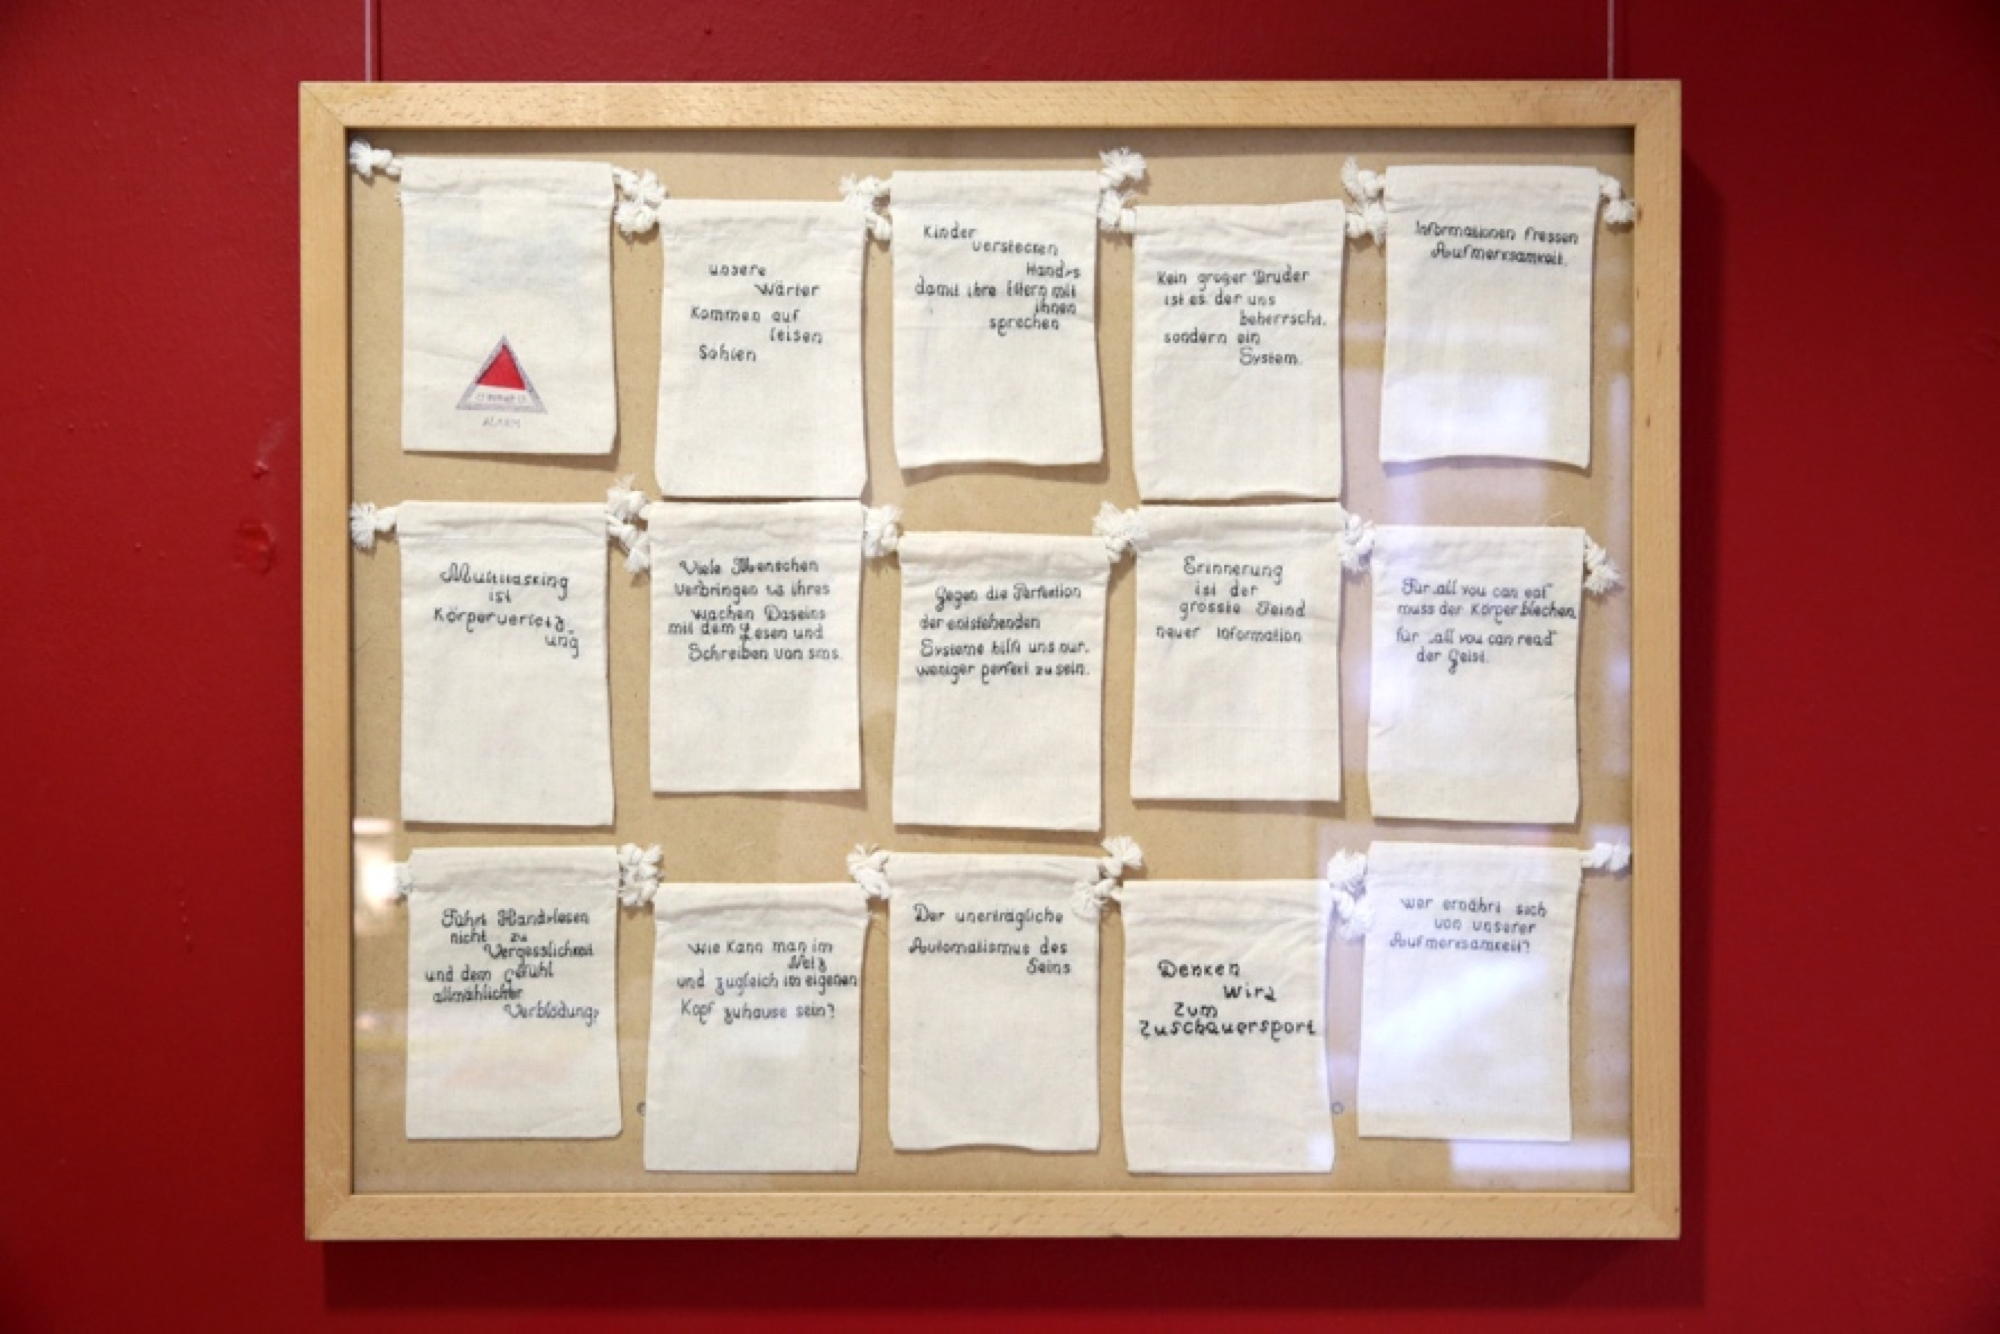 ALARM
unsere
Wärter
Kommen auf
leisen
Sohlen
Kinder
verstecken
Handys
damit ihre Eltern mit
ihnen
sprechen
Kein großer Bruder
ist es der uns
beherrscht.
sondern ein
System.
Informationen fressen
Aufmerksamkeit.
Multitasking
ist
Körperverletz-
ung
Viele Menschen
verbringen ihres
wachen Daseins
mit dem Lesen und
Schreiben von sms.
Gegen die Perfektion
der entstehenden
Systeme hilft uns nur.
weniger perfekt zu sein.
Erinnerung
ist der
grösste Feind
neuer Information
Für „all you can eat"
muss der Körper blechen
für „all you can read"
der Geist.
Führt Handylesen
nicht zu
Vergesslichkeit
und dem Gefühl
allmählicher
Verblödung?
Wie Kann man im
Netz
und zugleich im eigenen
Kopf zuhause sein?
Der unerträgliche
Automatismus des
Seins
Denken
wird
zum
Zuschauersport
wer ernährt sich
von unserer
Aufmerksamkeit?